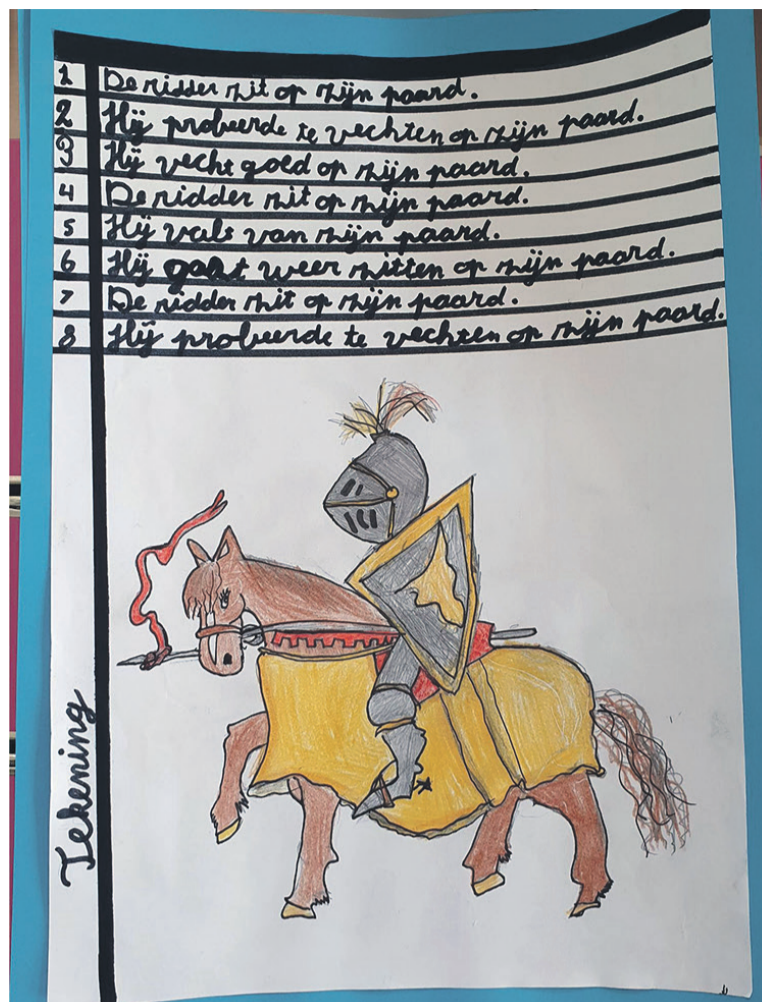 1 De ridder zit op zijn paard.
2 Hij probeerde te vechten op zijn paard.
3 Hij vecht goed op zijn paard.
4 De ridder zit op zijn paard.
5 Hij valt van zijn paard.
6 Hij gaat weer zitten op zijn paard.
7 De ridder zit op zijn paard.
8 Hij probeerde te vechten op zijn paard.
Tekening